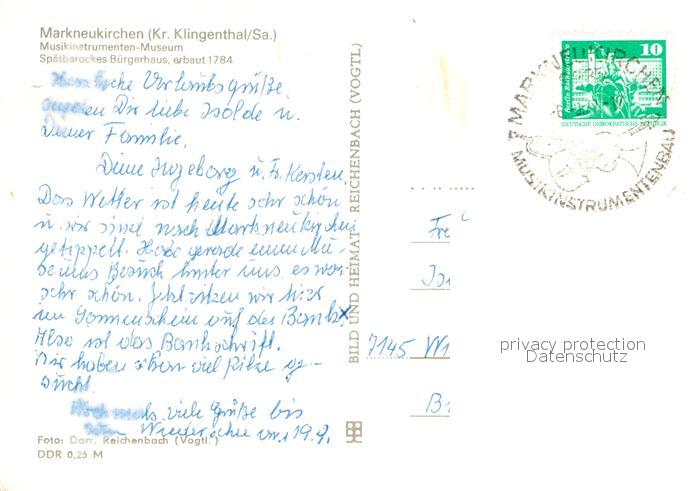 Markneukirchen (Kr. Klingenthal/Sa.)
Musikinstrumenten-Museum
Spätbarockes Bürgerhaus, erbaut 1784
Herzliche Urlaubsgrüße
senden Dir liebe Isolde u.
Deiner Familie,
Deine Ingeborg u. Fr. Kersten.
Das Wetter ist heute sehr schön
u. wir sind nach Markneukirchen
getippelt. Habe gerade einen Mu-
seums Besuch hinter uns, es war
sehr schön. Jetzt sitzen wir hier
im Sonnenschein auf der Bank x
Also ist das Bankschrift.
Wir haben schon viel Pilze ge-
sucht.
Nochmals viele Grüße bis
zum Wiedersehn am 19.9.
Foto: Darr, Reichenbach (Vogtl.)
DDR 0,25 M
BILD UND HEIMAT REICHENBACH (VOGTL)
10
Berlin Rathausstraße
DEUTSCHE DEMOKRATISCHE REPUBLIK
MARKNEUKIRCHEN
MUSIKINSTRUMENTENBAU
Fr
Is
7145 Wi
Br
privacy protection
Datenschutz